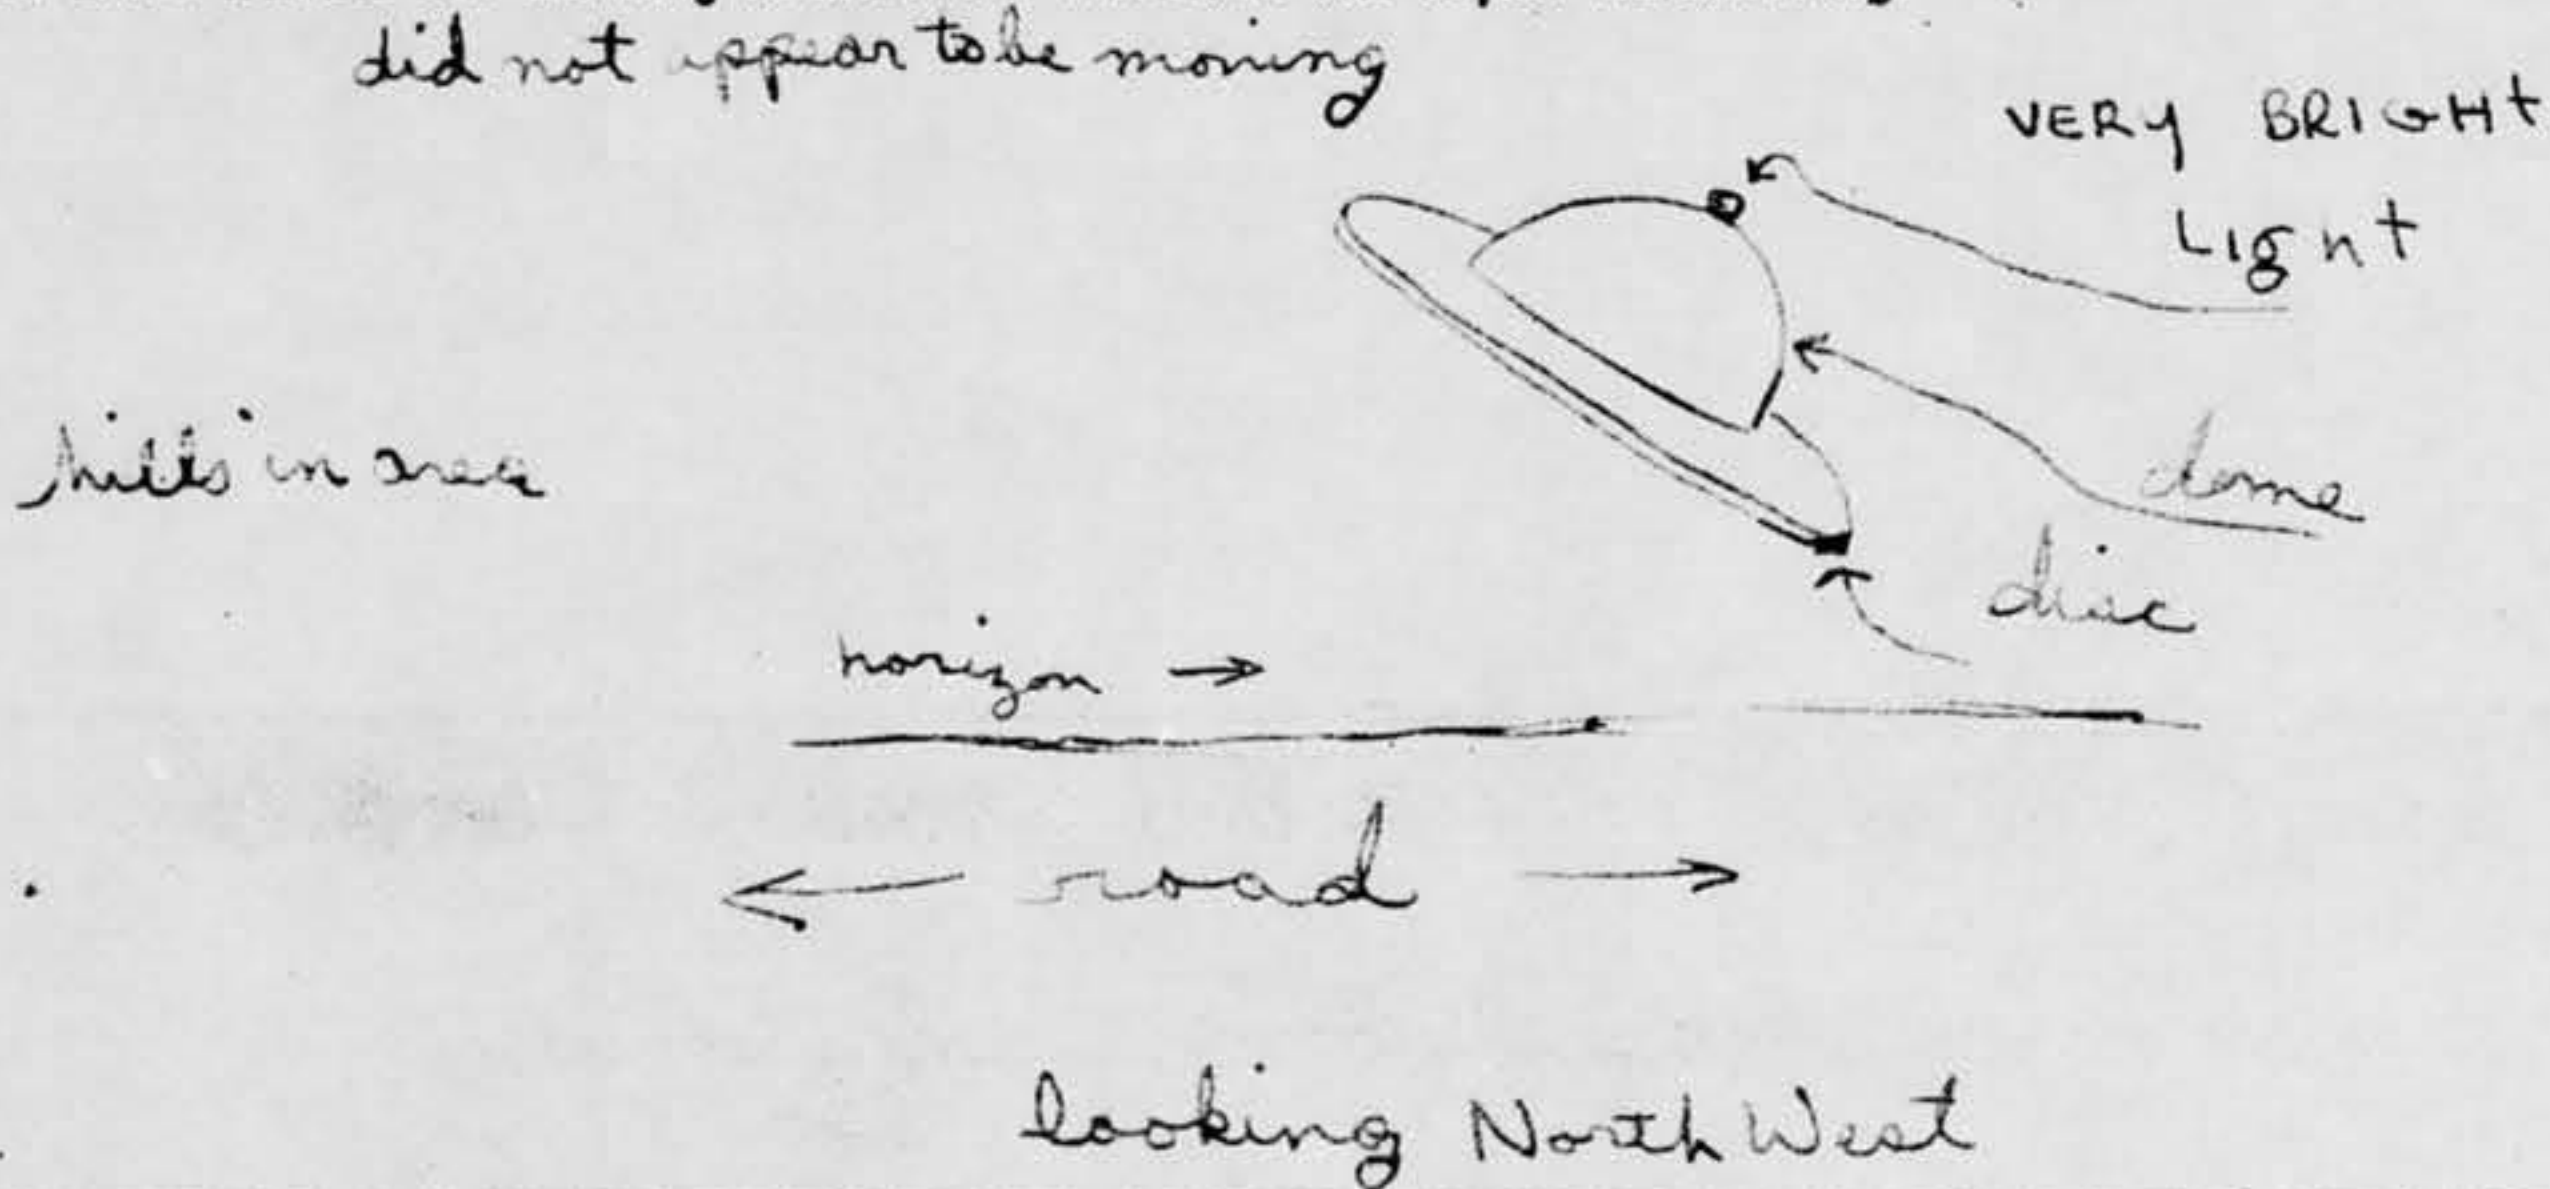 did not appear to be moving
VERY BRIGHt
Light
hills in area
dome
disc
horizon →
← road →
looking North West